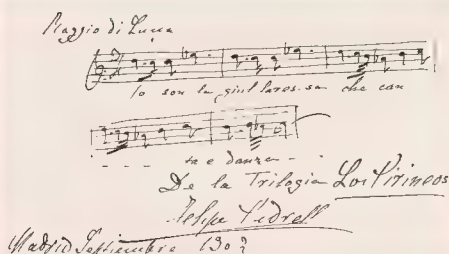 Raggio di Luna
Io son la giullaressa che can
ta e danza
De la Trilogia Los Pirineos
Felipe Pedrell
Madrid Septiembre 1902